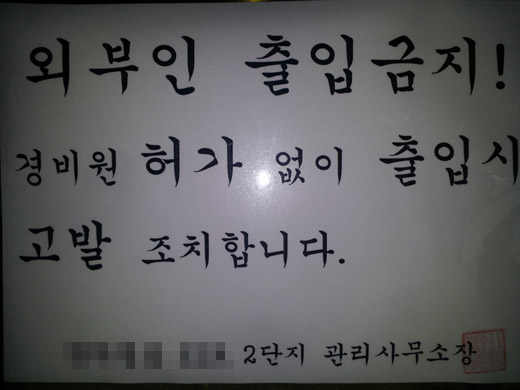 외부인 출입금지!
경비원 허가 없이 출입시
고발 조치합니다.
2단지 관리사무소장